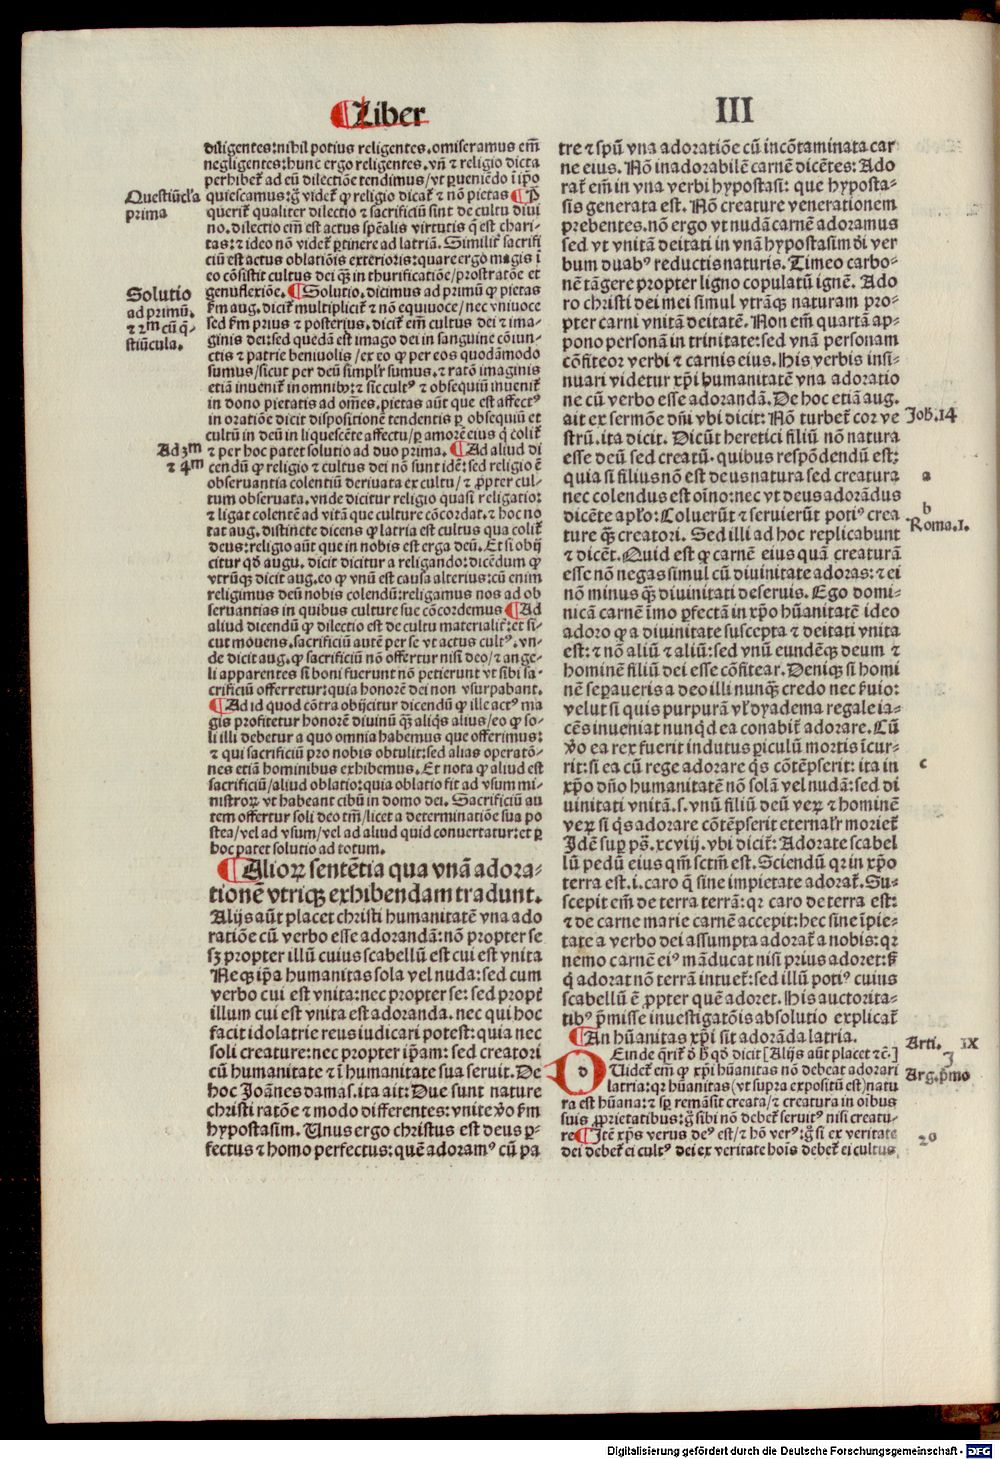 ¶Liber
III
diligentes: nihil potius religentes. omiseramus em̄
negligentes: hunc ergo religentes. vn̄ ⁊ religio dicta
perhibet᷑ ad eū dilectiōe tendimus/vt ꝑueniēdo ī ip̄o
quiescamus: g̊ videt᷑ ꝙ religio dicat᷑ ⁊ nō pietas ¶P̄
Questiūcl̓a
prima
querit᷑ qualiter dilectio ⁊ sacrificiū sint de cultu diui
no. dilectio em̄ est actus sp̄ealis virtutis q̄ est chari-
tas: ⁊ ideo nō videt᷑ ꝑtinere ad latriā. Similit᷑ sacrifi
ciū est actus oblatiōis exterioris: quare ergo magis ī
eo cōsistit cultus dei qꝫ in thurificatiōe/prostratōe et
genuflexiōe. ¶Solutio. dicimus ad primū ꝙ pietas
Solutio
ad primū.
⁊ 2m cū q̄-
stiūcula.
ẜm aug. dicit᷑ multiplicit᷑ ⁊ nō equiuoce/nec vniuoce
sed ẜm prius ⁊ posterius. dicit᷑ em̄ cultus dei ⁊ ima-
ginis dei: sed quedā est imago dei in sanguine cōiun-
ctis ⁊ patrie beniuolis/ex eo ꝙ per eos quodāmodo
sumus/sicut per deū simpl̓r sumus. ⁊ ratō imaginis
etiā inuenit᷑ in omnibꝰ: ⁊ sic cultꝰ ⁊ obsequiū inuenit᷑
in dono pietatis ad om̄es. pietas aūt que est affectꝰ
in oratiōe dicit dispositionē tendentis ꝑ obsequiū et
cultū in deū in liquescēte affectu/ꝑ amorē eius q̇ colit᷑
⁊ per hoc patet solutio ad duo prima. ¶Ad aliud di
Ad 3m
⁊ 4m
cendū ꝙ religio ⁊ cultus dei nō sunt idē: sed religio ē
obseruantia colentiū deriuata ex cultu/⁊ ꝓpter cul-
tum obseruata. vnde dicitur religio quasi religatio:
⁊ ligat colentē ad vitā que culture cōcordat. ⁊ hoc no
tat aug. distincte dicens ꝙ latria est cultus qua colit᷑
deus: religio aūt que in nobis est erga deū. Et si obij
citur qd̓ augu. dicit dicitur a religando: dicēdum ꝙ
vtrūqꝫ dicit aug. eo ꝙ vnū est causa alterius: cū enim
religimus deū nobis colendū: religamus nos ad ob
seruantias in quibus culture sue cōcordemus ¶Ad
aliud dicendū ꝙ dilectio est de cultu materialit᷑: et si-
cut mouens. sacrificiū autē per se vt actus cultꝰ. vn-
de dicit aug. ꝙ sacrificiū nō offertur nisi deo/⁊ ange-
li apparentes si boni fuerunt nō petierunt vt sibi sa-
crificiū offerretur: quia honorē dei non vsurpabant.
¶Ad id quod cōtra obijcitur dicendū ꝙ ille actꝰ ma
gis profitetur honorē diuinū qꝫ aliq̇s alius/eo ꝙ so-
li illi debetur a quo omnia habemus que offerimus:
⁊ qui sacrificiū pro nobis obtulit: sed alias operatō-
nes etiā hominibus exhibemus. Et nota ꝙ aliud est
sacrificiū/aliud oblatio: quia oblatio fit ad vsum mi-
nistroꝝ vt habeant cibū in domo dei. Sacrificiū au
tem offertur soli deo tm̄/licet a determinatiōe sua po
stea/vel ad vsum/vel ad aliud quid conuertatur: et ꝑ
hoc patet solutio ad totum.
¶Alioꝝ sentētia qua vnā adora-
tionē vtriqꝫ exhibendam tradunt.
Alijs aūt placet christi humanitatē vna ado
ratiōe cū verbo esse adorandā: nō propter se
sꝫ propter illū cuius scabellū est cui est vnita
Neqꝫ ip̄a humanitas sola vel nuda: sed cum
verbo cui est vnita: nec propter se: sed propt̓
illum cui est vnita est adoranda. nec qui hoc
facit idolatrie reus iudicari potest: quia nec
soli creature: nec propter ip̄am: sed creatori
cū humanitate ⁊ ī humanitate sua seruit. De
hoc Joānes damas. ita ait: Due sunt nature
christi ratōe ⁊ modo differentes: vnite v̓o ẜm
hypostasim. Unus ergo christus est deus ꝑ-
fectus ⁊ homo perfectus: quē adoramꝰ cū pa
tre ⁊ spū vna adoratiōe cū incōtaminata car
ne eius. Nō inadorabilē carnē dicētes: Ado
rat᷑ em̄ in vna verbi hypostasi: que hyposta-
sis generata est. Nō creature venerationem
prebentes. nō ergo vt nudā carnē adoramus
sed vt vnitā deitati in vnā hypostasim dei ver
bum duabꝰ reductis naturis. Timeo carbo-
nē tāgere propter ligno copulatū ignē. Ado
ro christi dei mei simul vtrāqꝫ naturam pro-
pter carni vnitā deitatē. Non em̄ quartā ap-
pono personā in trinitate: sed vnā personam
cōfiteor verbi ⁊ carnis eius. His verbis insi-
nuari videtur xp̄i humanitatē vna adoratio
ne cū verbo esse adorandā. De hoc etiā aug.
ait ex sermōe dn̄i vbi dicit: Nō turbet᷑ cor ve
Joh. 14
strū. ita dicit. Dicūt heretici filiū nō natura
esse deū sed creatū. quibus respōdendū est:
quia si filius nō est deus natura sed creatura
a
nec colendus est oīno: nec vt deus adorādus
dicēte apl̓o: Coluerūt ⁊ seruierūt potiꝰ crea
b
Roma. 1.
ture qꝫ creatori. Sed illi ad hoc replicabunt
⁊ dicēt. Quid est ꝙ carnē eius quā creaturā
esse nō negas simul cū diuinitate adoras: ⁊ ei
nō minus qꝫ diuinitati deseruis. Ego domi-
nicā carnē īmo ꝑfectā in xp̄o hūanitatē ideo
adoro ꝙ a diuinitate suscepta ⁊ deitati vnita
est: ⁊ nō aliū ⁊ aliū: sed vnū eundēqꝫ deum ⁊
hominē filiū dei esse cōfitear. Deniqꝫ si homi
nē seꝑaueris a deo illi nunqꝫ credo nec ẜuio:
velut si quis purpurā vl̓ dyadema regale ia-
cēs inueniat nunqd̓ ea conabit᷑ adorare. Cū
v̓o ea rex fuerit indutus ꝑiculū mortis īcur-
rit: si ea cū rege adorare q̇s cōtēpserit: ita in
c
xp̄o dn̄o humanitatē nō solā vel nudā: sed di
uinitati vnitā. s. vnū filiū deū veꝝ ⁊ hominē
veꝝ si q̇s adorare cōtēpserit eternal̓r moriet᷑
Jdē suꝑ ps̄. xcviij. vbi dicit᷑: Adorate scabel
lū pedū eius qm̄ sctm̄ est. Sciendū qꝛ in xp̄o
terra est. i. caro q̄ sine impietate adorat᷑. Su-
scepit em̄ de terra terrā: qꝛ caro de terra est:
⁊ de carne marie carnē accepit: hec sine īpie-
tate a verbo dei assumpta adorat᷑ a nobis: qꝛ
nemo carnē eiꝰ māducat nisi prius adoret: ẜ
q̇ adorat nō terrā intuet᷑: sed illū potiꝰ cuius
scabellū ē ꝓpter quē adoret. His auctorita-
tibꝰ p̄misse inuestigatōis absolutio explicat᷑
¶An hūanitas xp̄i sit adorāda latria.
Arti. IX
DEinde q̄rit᷑ d̓ h̓ qd̓ dicit [Alijs aūt placet ⁊c̄.]
Uidet᷑ em̄ ꝙ xp̄i hūanitas nō debeat adorari
1
Arg. p̄mo
latria: qꝛ hūanitas (vt supra expositū est) natu
ra est hūana: ⁊ sꝑ remāsit creata/⁊ creatura in oībus
suis ꝓprietatibus: g̊ sibi nō debet᷑ seruitꝰ nisi creatu-
re ¶Jtē xp̄s verus deꝰ est/⁊ hō verꝰ: g̊ si ex veritate
2o
dei debet᷑ ei cultꝰ dei ex veritate hoīs debet᷑ ei cultus
Digitalisierung gefördert durch die Deutsche Forschungsgemeinschaft - DFG